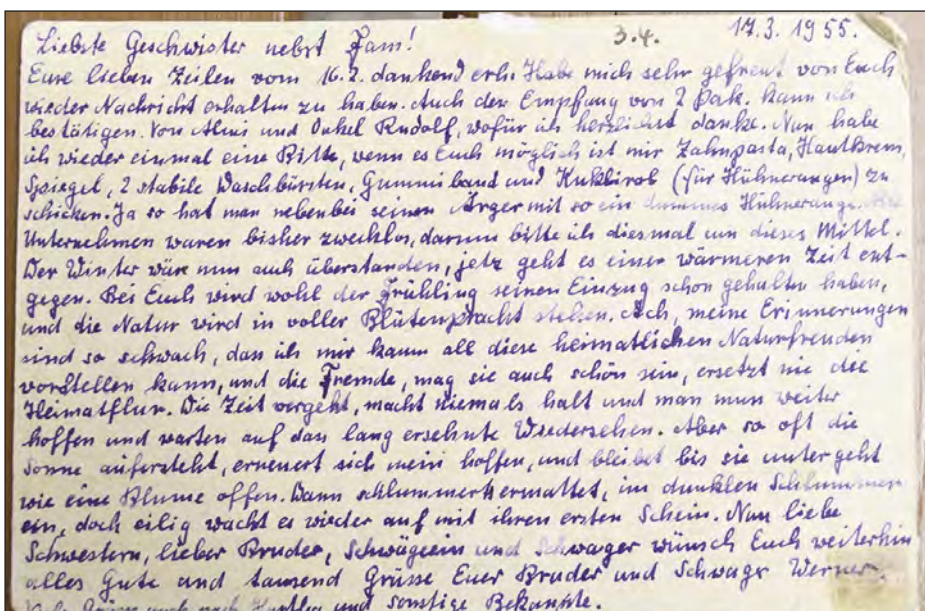 3.4. 17.3.1955.
Liebste Geschwister nebst Fam!
Eure lieben Zeilen vom 16.2. dankend erh. Habe mich sehr gefreut von Euch
wieder Nachricht erhalten zu haben. Auch den Empfang von 2 Pak. kann ich
bestätigen. Von Almi und Onkel Rudolf, wofür ich herzlichst danke. Nun habe
ich wieder einmal eine Bitte, wenn es Euch möglich ist mir Zahnpasta, Hautkrem,
Spiegel, 2 stabile Waschbürsten, Gummiband und Kukbirol (für Hühneraugen) zu
schicken. Ja so hat man nebenbei seinen Ärger mit so ein dummes Hühnerauge.
Unternehmen waren bisher zwecklos, darum bitte ich diesmal um dieses Mittel.
Der Winter wär nun auch überstanden, jetz geht es einer wärmeren Zeit ent-
gegen. Bei Euch wird wohl der Frühling seinen Einzug schon gehalten haben,
und die Natur wird in voller Blütenpracht stehen. Ach, meine Erinnerungen
sind so schwach, das ich mir kaum all diese heimatlichen Naturfreuden
vorstellen kann, und die Fremde, mag sie auch schön sein, ersetzt nie die
Heimatflur. Die Zeit vergeht, macht niemals halt und man mus weiter
hoffen und warten auf das lang ersehnte Wiedersehen. Aber so oft die
Sonne aufersteht, erneuert sich mein hoffen, und bleibet bis sie untergeht
wie eine Blume offen. Dann schlummert ermattet, im dunklen Schlummer
ein, doch eilig wacht es wieder auf mit ihren ersten Schein. Nun liebe
Schwestern, lieber Bruder, Schwägerin und Schwager wünsch Euch weiterhin
alles Gute und tausend Grüsse Euer Bruder und Schwager Werner.
Grüsse auch nach und sonstige Bekannte.